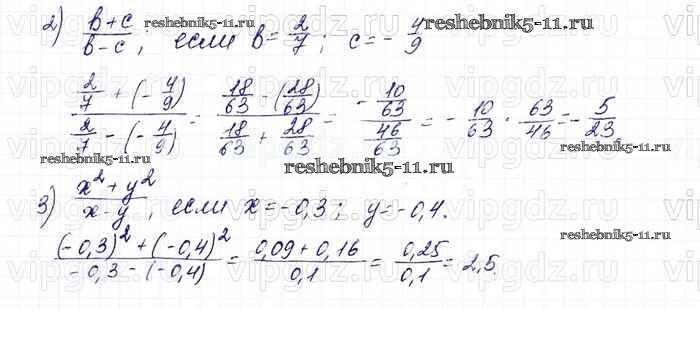 2) (b+c)/(b-c); если b = 2/7; c = -4/9
(2/7 + (-4/9))/(2/7 - (-4/9)) = (18/63 - (28/63))/(18/63 + 28/63) = (-10/63)/(46/63) = -10/63 · 63/46 = -5/23
3) (x² + y²)/(x-y), если x = -0,3; y = -0,4.
((-0,3)² + (-0,4)²)/(-0,3 - (-0,4)) = (0,09 + 0,16)/(0,1) = 0,25/0,1 = 2,5.
reshebnik5-11.ru
reshebnik5-11.ru
reshebnik5-11.ru
reshebnik5-11.ru
reshebnik5-11.ru
reshebnik5-11.ru
vipgdz.ru